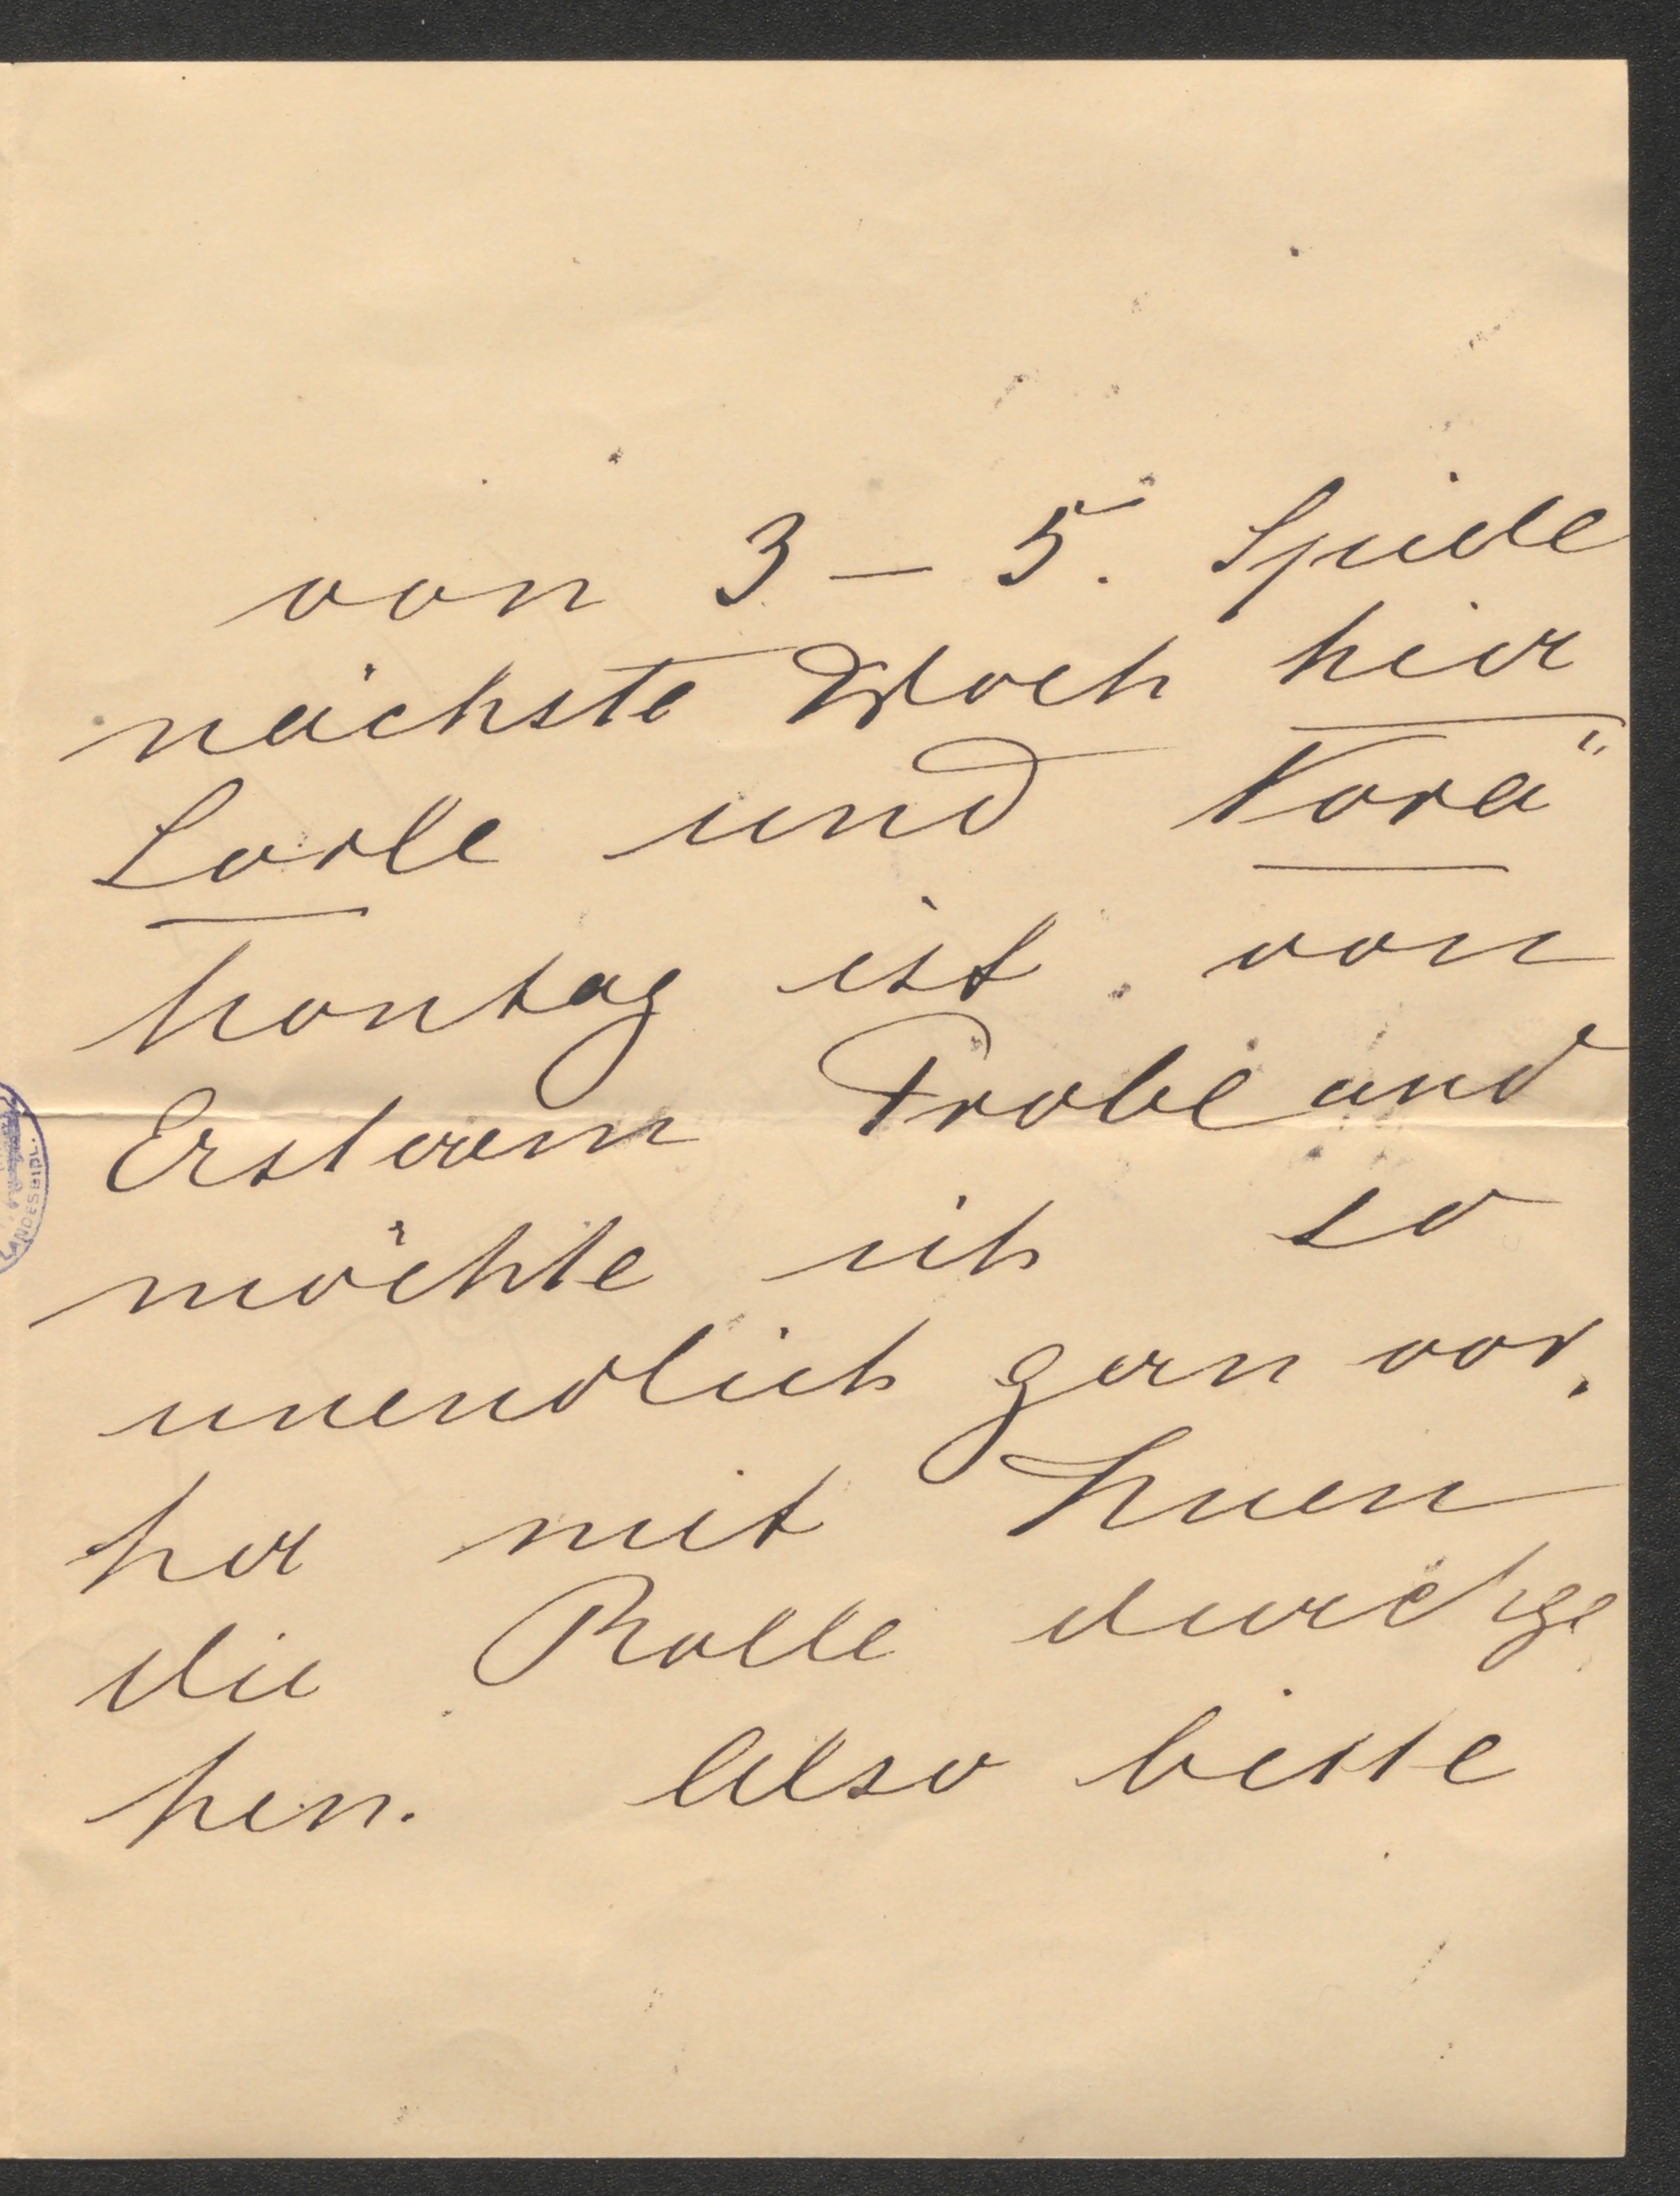 von 3 – 5. Spiele
nächste Woch hier
Lorle und Nora"
Montag ist von
Ersterem Probe und
möchte ich so
unendlich gern vor,
her mit Ihnen
die Rolle durchge
hen. Also bitte
LANDESBIBL.